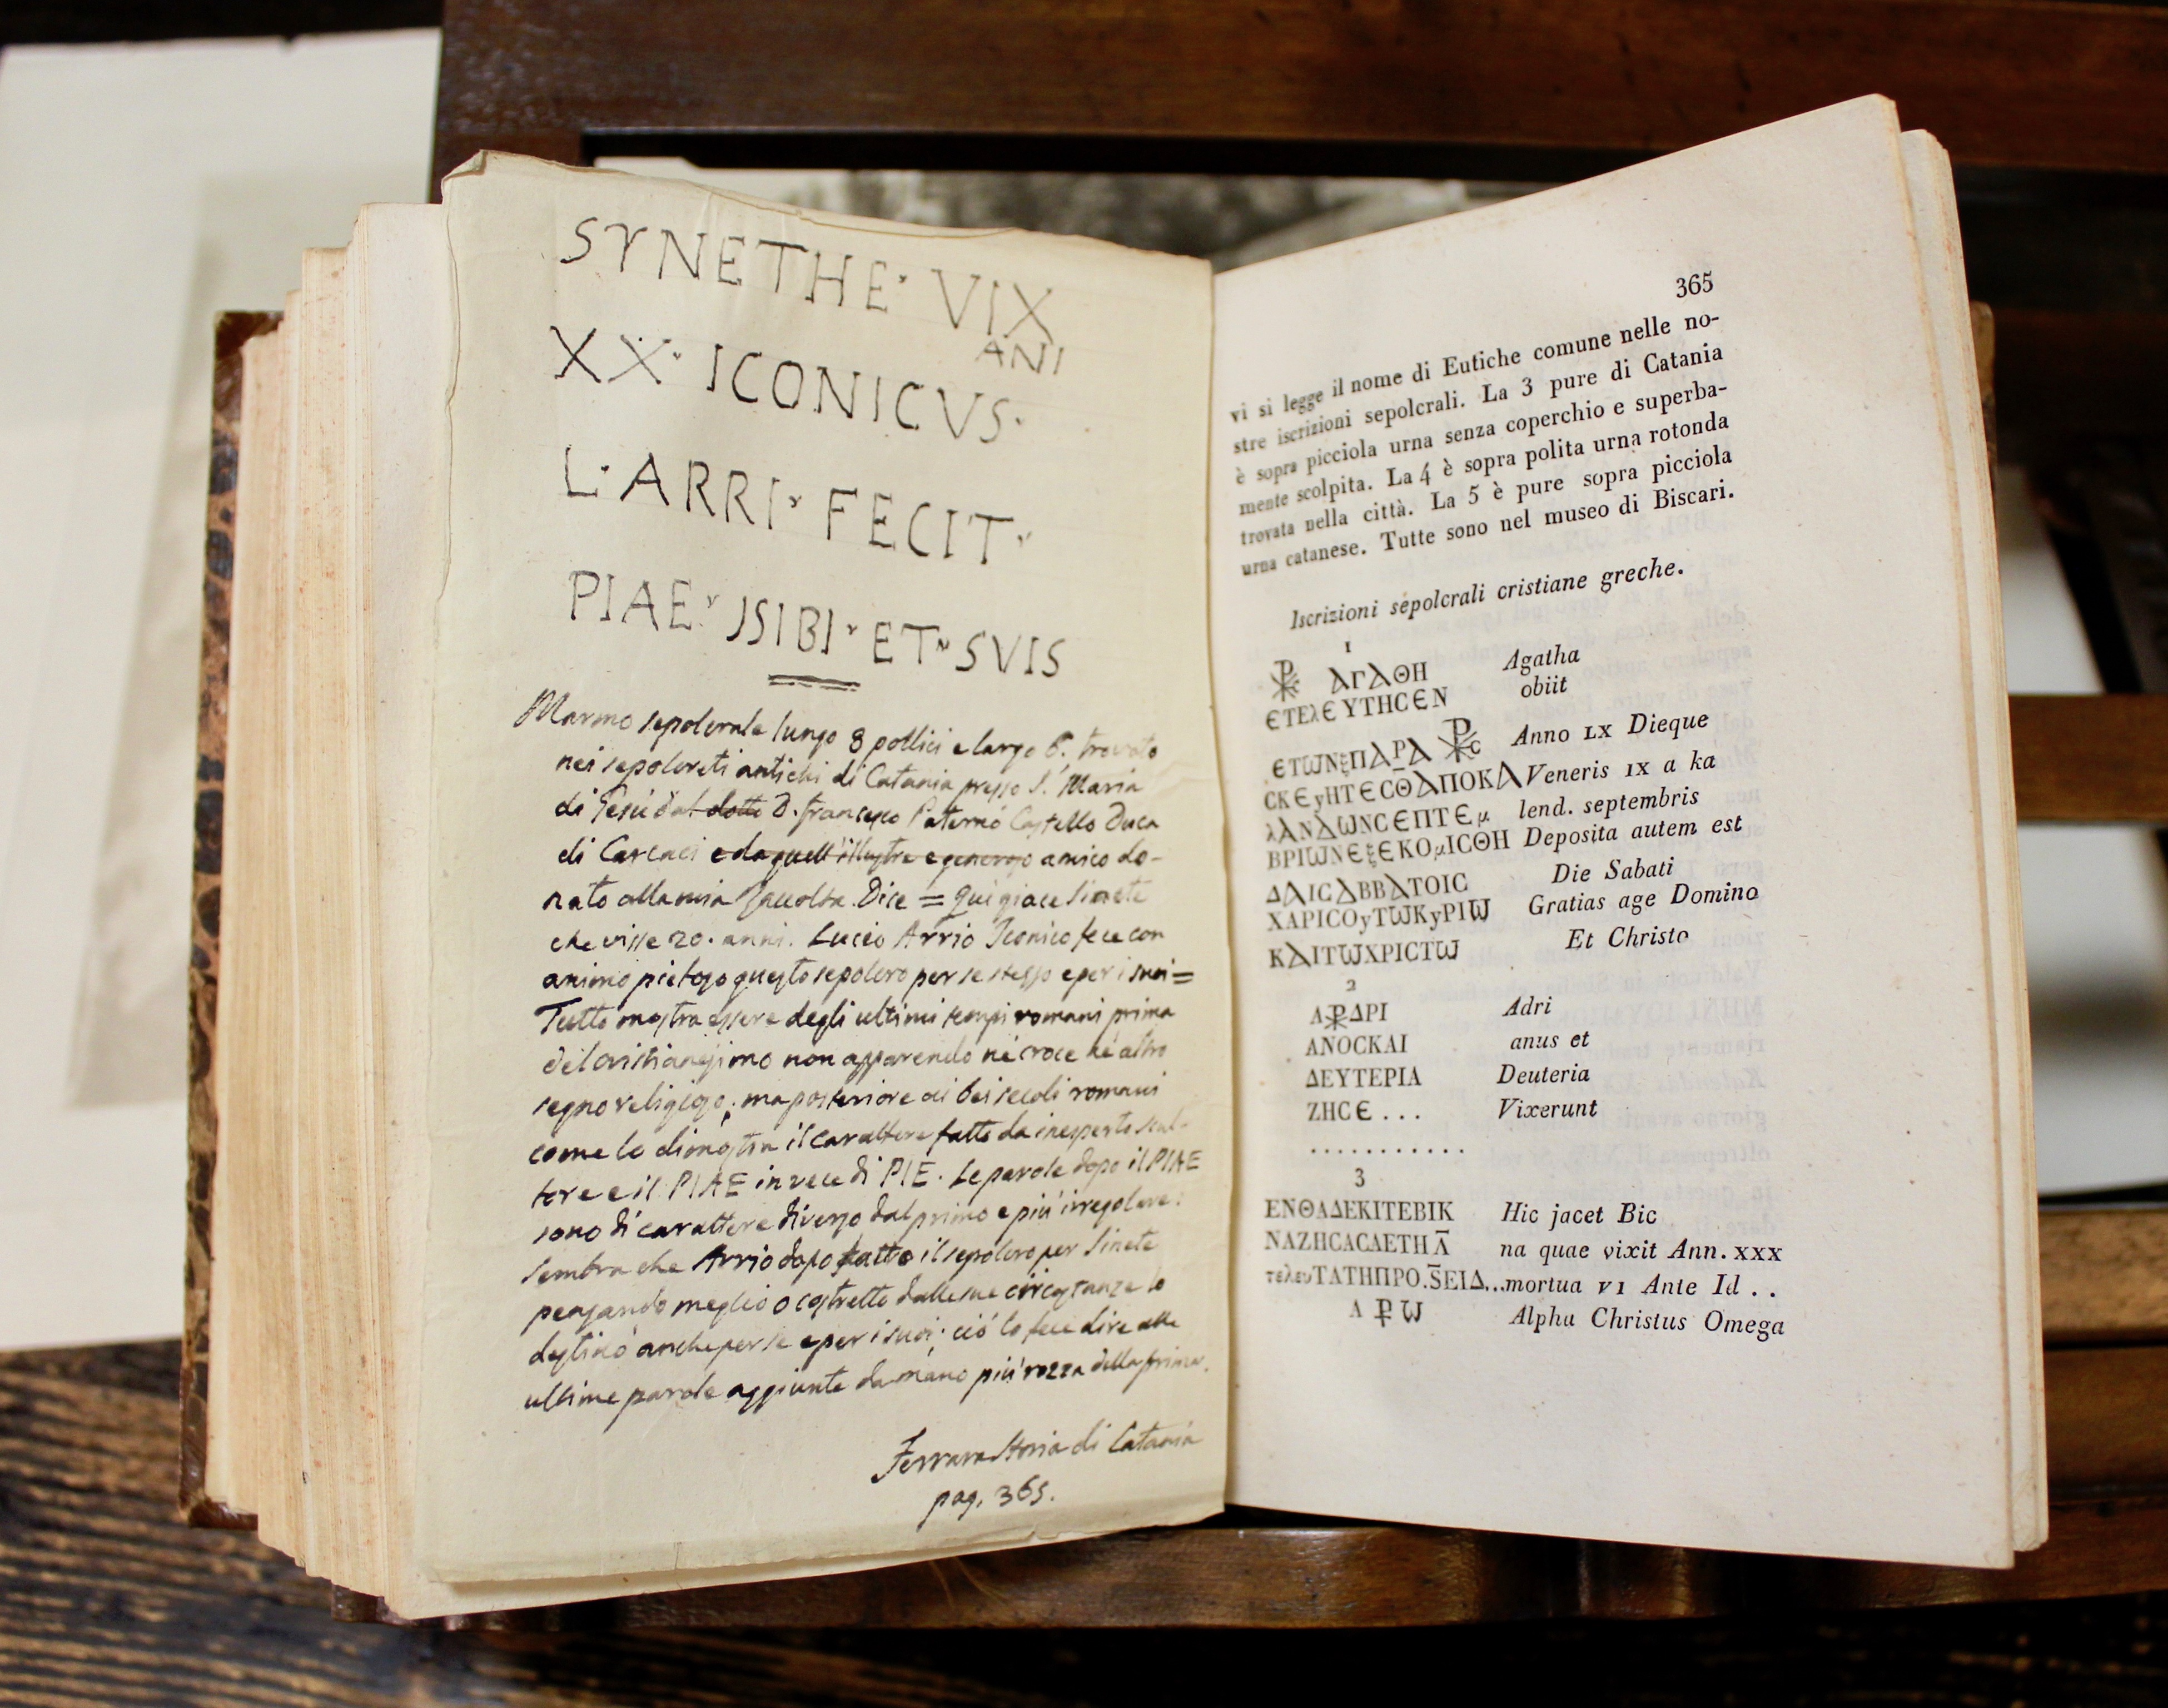 SYNETHE· VIX
ANI
XX· ICONICVS·
L· ARRI· FECIT·
PIAE· ISIBI· ET· SVIS
Marmo sepolcrale lungo 8 pollici e largo 6. trovato
nei sepolcreti antichi di Catania presso S. Maria
di Gesù dal dotto D. Francesco Paternò Castello Duca
di Carcaci e da quell'illustre e generoso amico do-
nato alla mia Raccolta. Dice = Qui giace Sinete
che visse 20. anni. Lucio Arrio Iconico fece con
animo pietoso questo sepolcro per se stesso e per i suoi =
Tutto mostra essere degli ultimi tempi romani prima
del cristianesimo non apparendo nè croce nè altro
segno religioso; ma posteriore ai bei secoli romani
come lo dimostra il carattere fatto da inesperto scul-
tore e il PIAE in vece di PIE. Le parole dopo il PIAE
sono di carattere diverso dal primo e più irregolare:
sembra che Arrio dopo fatto il sepolcro per Sinete
pensando meglio o costretto dalle sue circostanze lo
destinò anche per se e per i suoi; ciò lo fece dire alle
ultime parole aggiunte da mano più rozza della prima.
Ferrara Storia di Catania
pag. 365.
365
vi si legge il nome di Eutiche comune nelle no-
stre iscrizioni sepolcrali. La 3 pure di Catania
è sopra picciola urna senza coperchio e superba-
mente scolpita. La 4 è sopra polita urna rotonda
trovata nella città. La 5 è pure sopra picciola
urna catanese. Tutte sono nel museo di Biscari.
Iscrizioni sepolcrali cristiane greche.
1
☧ ΑΓΑΘΗ Agatha
ЄΤΕλЄΥΤΗCЄΝ obiit
ЄΤѠΝξΠΑΡΑ ☧C Anno LX Dieque
CΚЄyΗΤЄCΘ̅ΑΠΟΚΑ Veneris IX a ka
λΑΝΔѠΝCЄΠΤЄμ lend. septembris
ΒΡΙѠΝЄξЄΚΟμΙCΘΗ Deposita autem est
ΔΑΙCΑΒΒΑΤΟΙC Die Sabati
ΧΑΡΙCΟyΤѠΚyΡΙѠ Gratias age Domino
ΚΑΙΤѠΧΡΙCΤѠ Et Christo
2
Α☧ΔΡΙ Adri
ΑΝΟCΚΑΙ anus et
ΔΕΥΤΕΡΙΑ Deuteria
ΖΗCЄ . . . Vixerunt
. . . . . . . . . . .
3
ΕΝΘΑΔΕΚΙΤΕΒΙΚ Hic jacet Bic
ΝΑΖΗCΑCΑΕΤΗ Λ̅ na quae vixit Ann. XXX
τελευΤΑΤΗΠΡΟ.S̅ΕΙΔ... mortua VI Ante Id . .
Α ☧ Ѡ Alpha Christus Omega